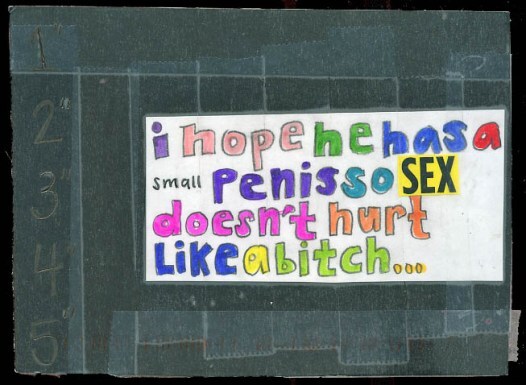 1"
2"
3"
4"
5"
i hope he has a
small penis so SEX
doesn't hurt
Like a bitch...